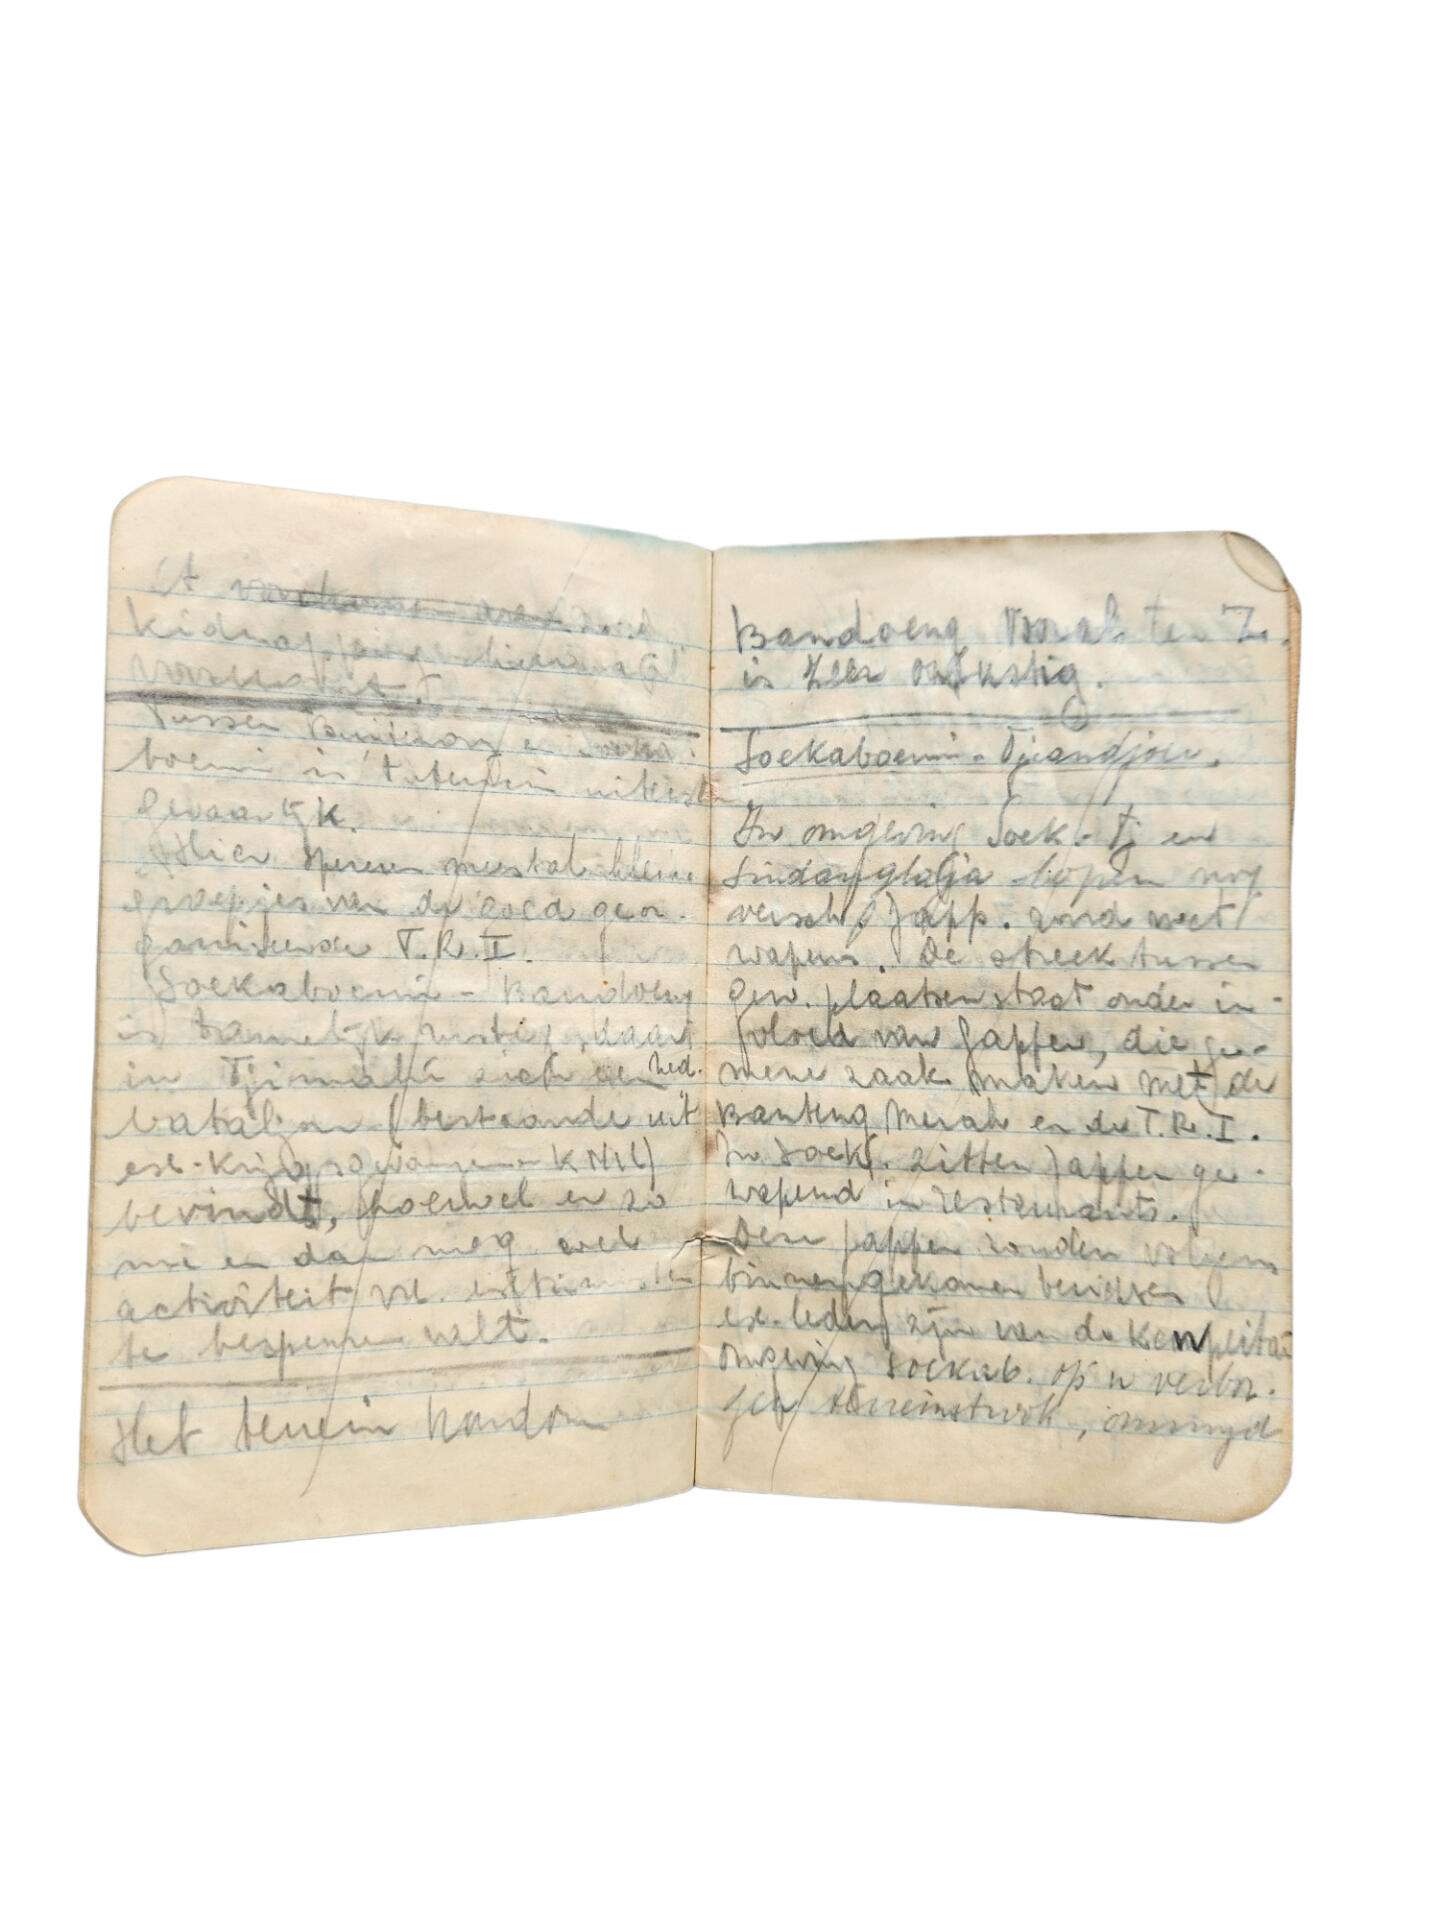 kidnapping hiervan af
Tussen Buitenzorg en Soeka-
boemi is 't terrein uiterst
gevaarlijk.
Hier opereren meestal kleine
groepjes van de goed geor-
ganiseerde T.R.I.
Soekaboemi - Bandoeng
is tamelijk rustig, daar
in Tjimahi zich een Ned.
bataljon (bestaande uit
ex-krijgsgevangenen KNIL)
bevindt, hoewel er zo
nu en dan nog wel
activiteit v.d. extremisten
te bespeuren valt.
Het terrein rondom
Bandoeng vooral ten Z.
is zeer onrustig.
Soekaboemi - Tjiandjoer.
In omgeving Soek - Tj en
Sindanglaja lopen nog
versch. Japp. rond met
wapens. De streek tussen
gen. plaatsen staat onder in-
vloed van Jappen, die ge-
mene zaak maken met de
Banteng Merah en de T.R.I.
In Soek. zitten Jappen ge-
wapend in restaurants.
Deze Jappen zouden volgens
binnengekomen berichten
ex-leden zijn van de Kempeitai
omgeving Soekab. op 'n verbor-
gen terreinstrook, omringd